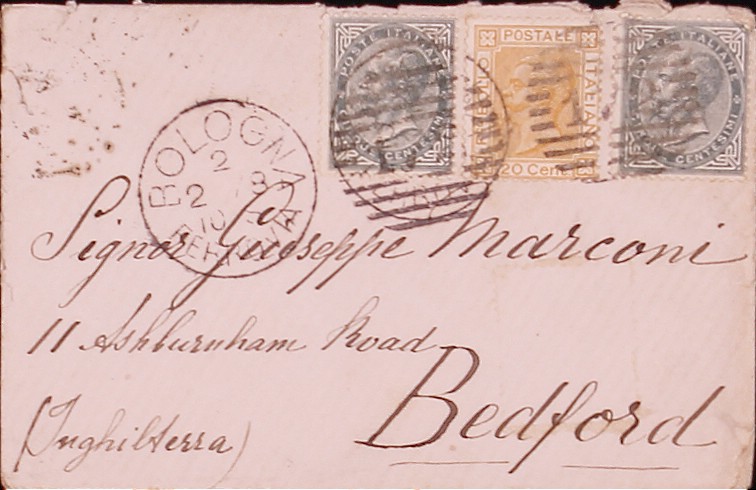 POSTE ITALIANE
CENTESIMI
POSTALE
ITALIANO
20 Cent
POSTE ITALIANE
CENTESIMI
BOLOGNA
2
2 8
10
FERROVIA
Signor Giuseppe Marconi
11 Ashburnham Road
Bedford
(Inghilterra)